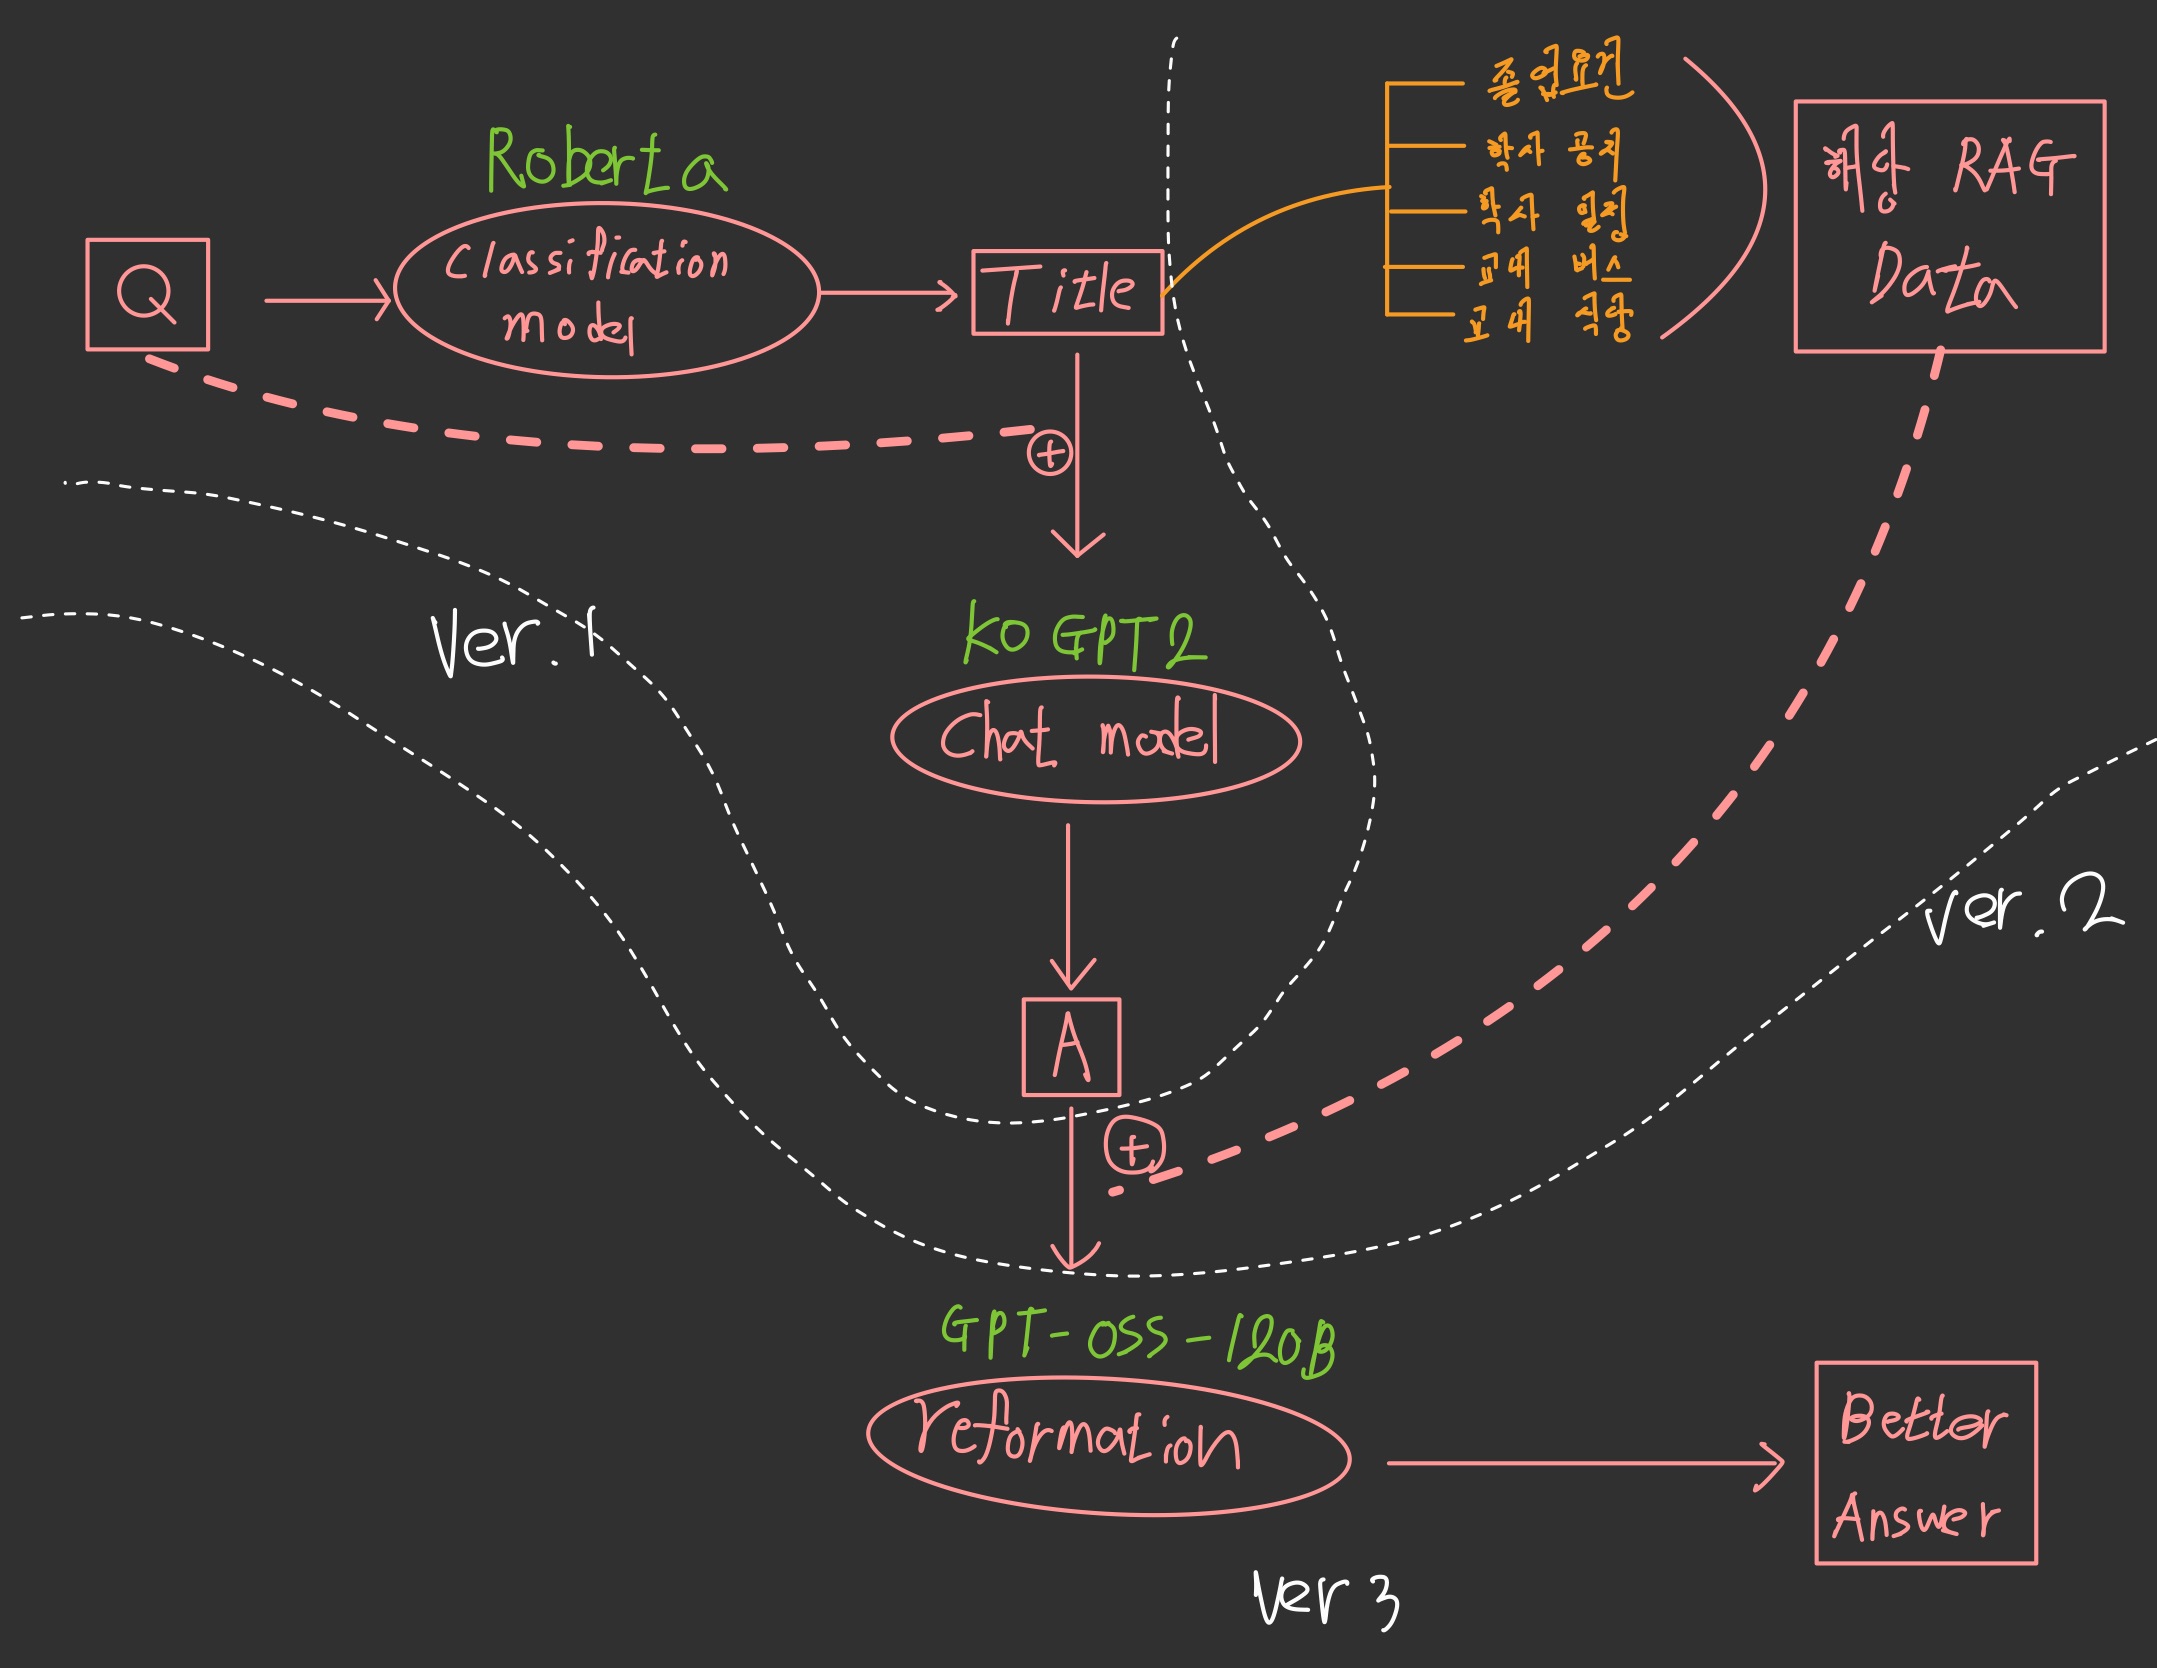 Roberta
Q
Classification
model
Title
졸업요건
학사 공지
학사 일정
교내 버스
교내 식당
해당 RAG
Data
+
Ver. 1
KO GPT2
Chat model
ver. 2
A
+
GPT-OSS-120B
reformation
Better
Answer
Ver 3